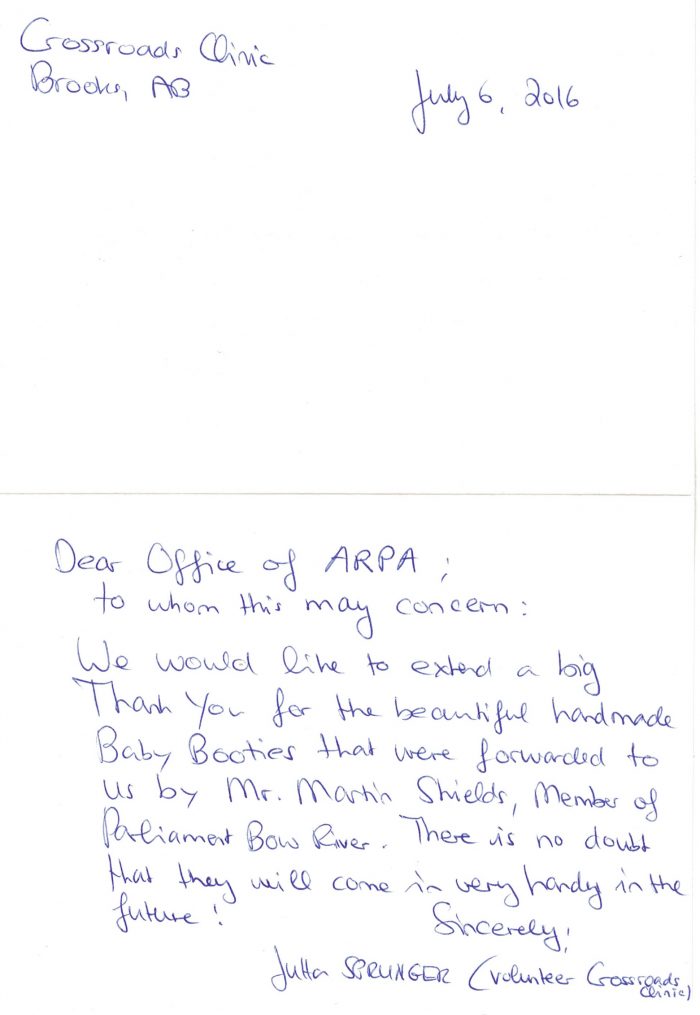 Crossroads Clinic
Brooks, AB
July 6, 2016
Dear Office of ARPA ;
to whom this may concern :
We would like to extend a big
Thank You for the beautiful handmade
Baby Booties that were forwarded to
us by Mr. Martin Shields, Member of
Parliament Bow River. There is no doubt
that they will come in very handy in the
future !
Sincerely,
Jutta SPRUNGER (volunteer Crossroads
Clinic)